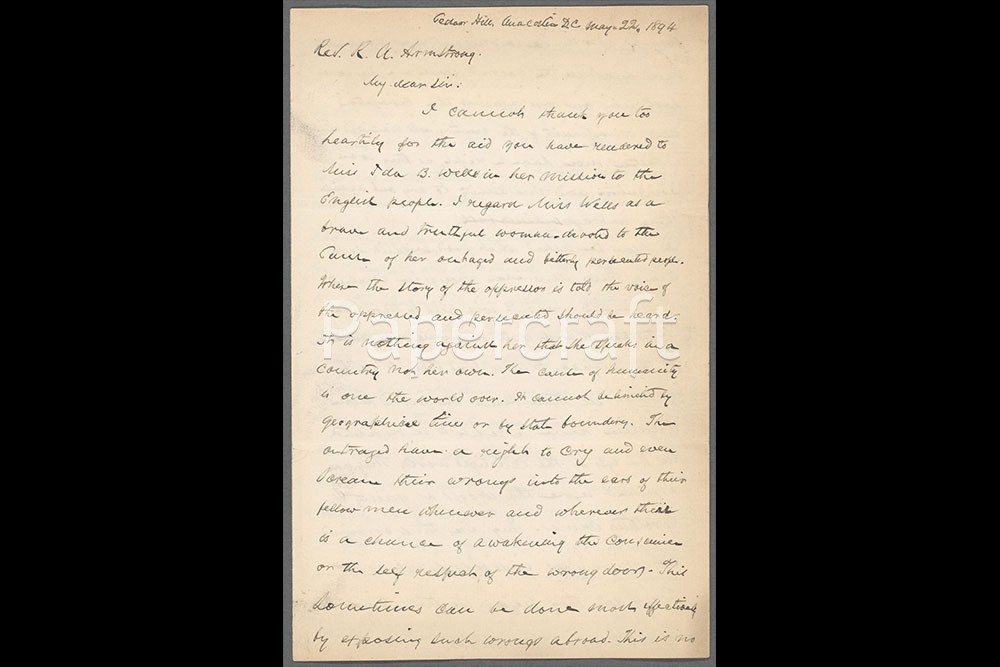 Cedar Hill, Anacostia DC May. 22, 1894
Rev. R. A. Armstrong.
My dear Sir:
I cannot thank you too
heartily for the aid you have rendered to
Miss Ida B. Wells in her mission to the
English people. I regard Miss Wells as a
brave and truthful woman devoted to the
Cause of her outraged and bitterly persecuted people.
Where the story of the oppressor is told, the voice of
the oppressed and persecuted should be heard.
Papercraft
It is nothing against her that she speaks in a
country not her own. The cause of humanity
is one the world over. It cannot be limited by
geographical lines or by state boundery. The
outraged have a right to cry and even
scream their wrongs into the ears of their
fellow men whenever and wherever their
is a chance of awakening the conscience
or the self respect of the wrong doers. This
sometimes can be done most effectively
by exposing such wrongs abroad. This is no